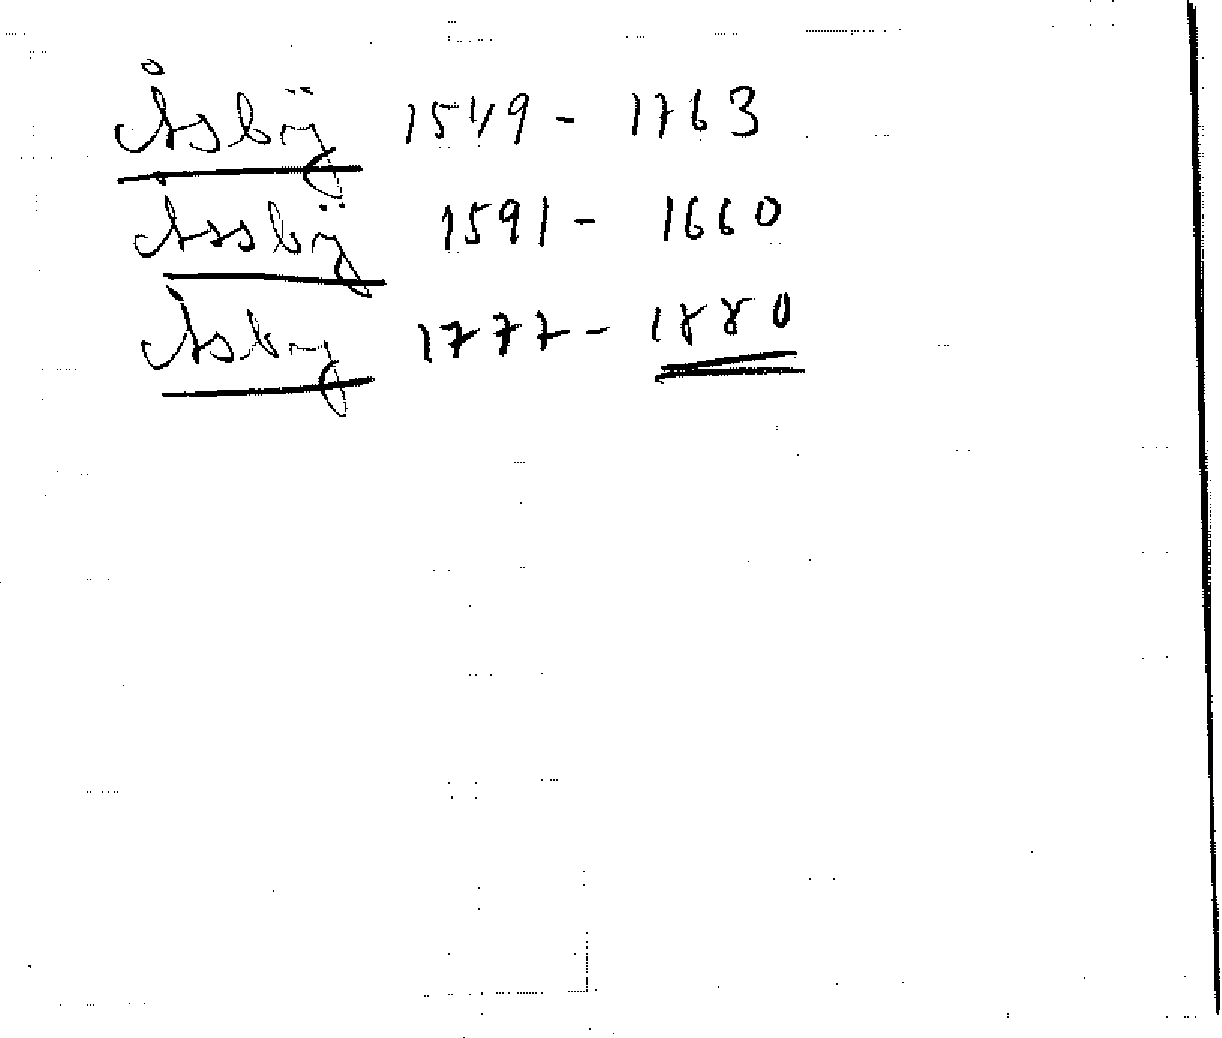 Åsbÿ 1549 - 1763
Åssbÿ 1591 - 1660
Åsby 1777 - 1880